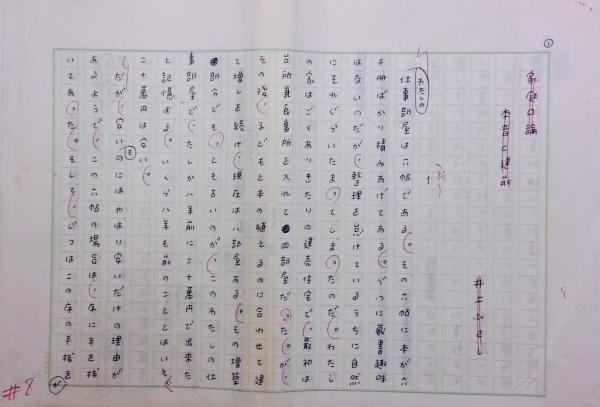 ①
家庭口論
本音と建前
井上ひさし
わたしの
仕事部屋は六帖である。その六帖に本が六
千冊ばかり積みあげてある。べつに蔵書趣味
はないのだが、整理を怠けているうちに自然
にそれぐらいたまってしまったのだ。わたし
の家はごくありきたりの建売住宅で、最初は
台所兼食事所を入れて四部屋だった。が、
その後、子どもと本の殖えるのに合わせて建
て増しを続け、現在は八部屋ある。その増築
部分でもっとも古いのが、このわたしの仕
事部屋で、たしか八年前に二十萬円で出来た
と記憶する。いくら八年も前のこととはいえ、
二十萬円は安い。
だが、安いのにはやはり安いだけの理由が
も
あるようで、この六帖の場合は、床に手を抜
いてあった。そして、じつはこの床の手抜き
が
#8